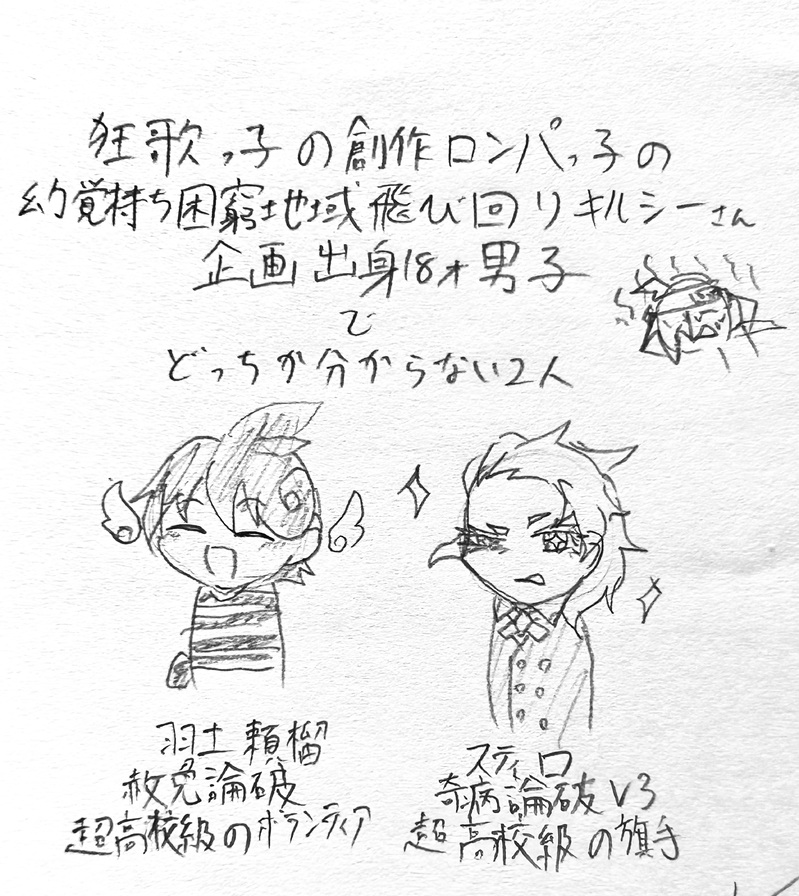 狂歌っ子の創作ロンパっ子の
幻覚持ち困窮地域飛び回りキルシーさん
企画出身18才男子
で
どっちか分からない2人
羽土頼榴
赦免論破
超高校級のボランティア
スティロ
奇病論破V3
超高校級の旗手